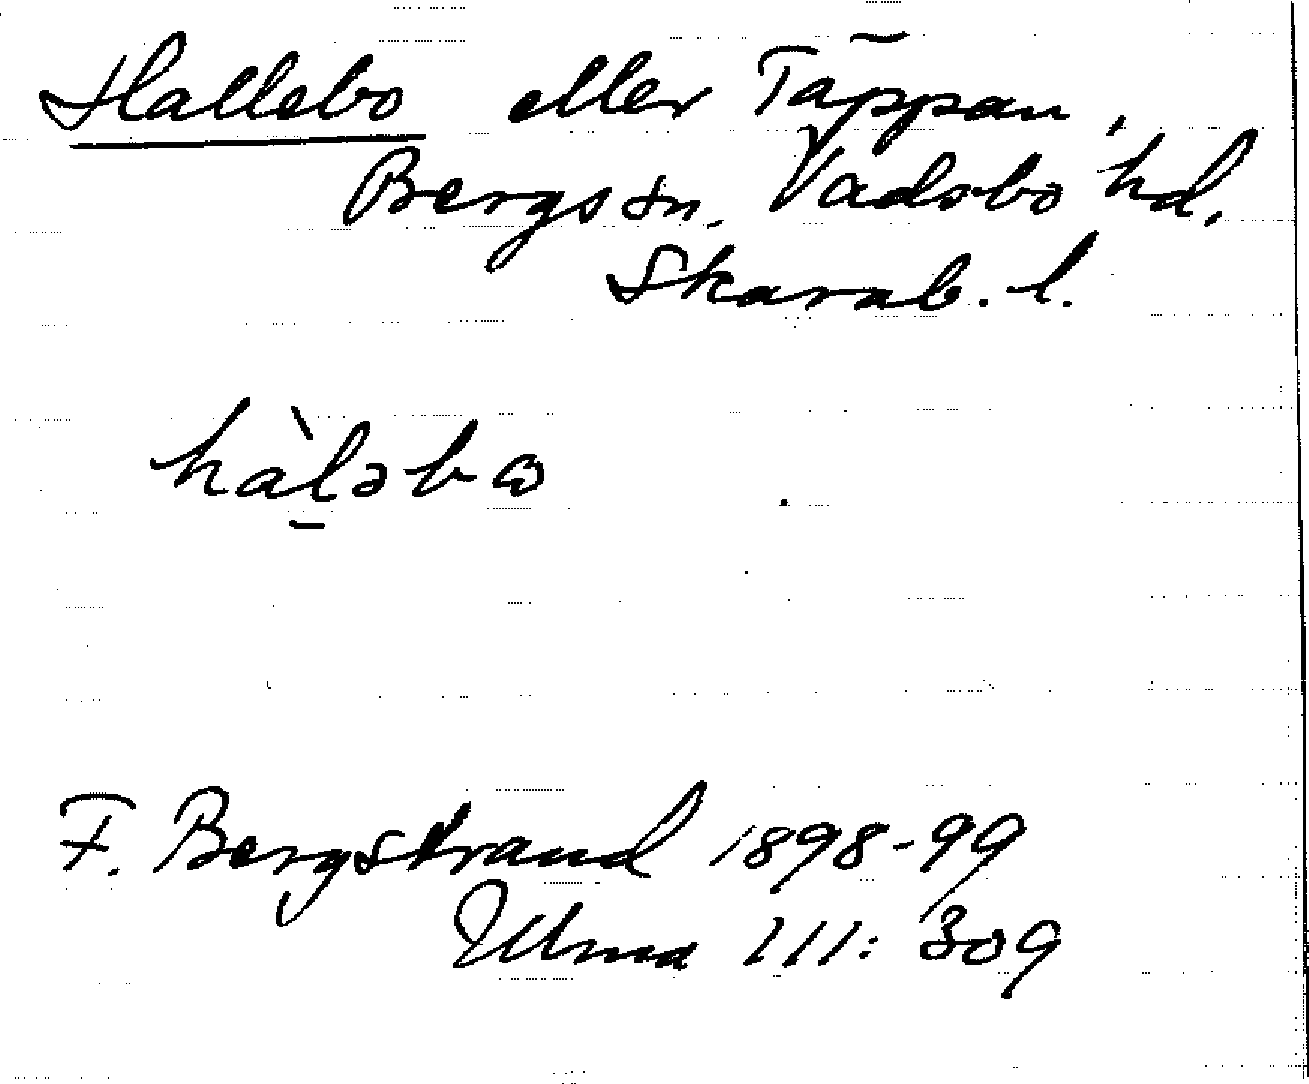 Hallebo eller Täppan,
Bergs sn. Vadsbo hd.
Skarab. l.
hàl̠əbɷ
F. Bergstrand 1898-99
Ulma 111: 309